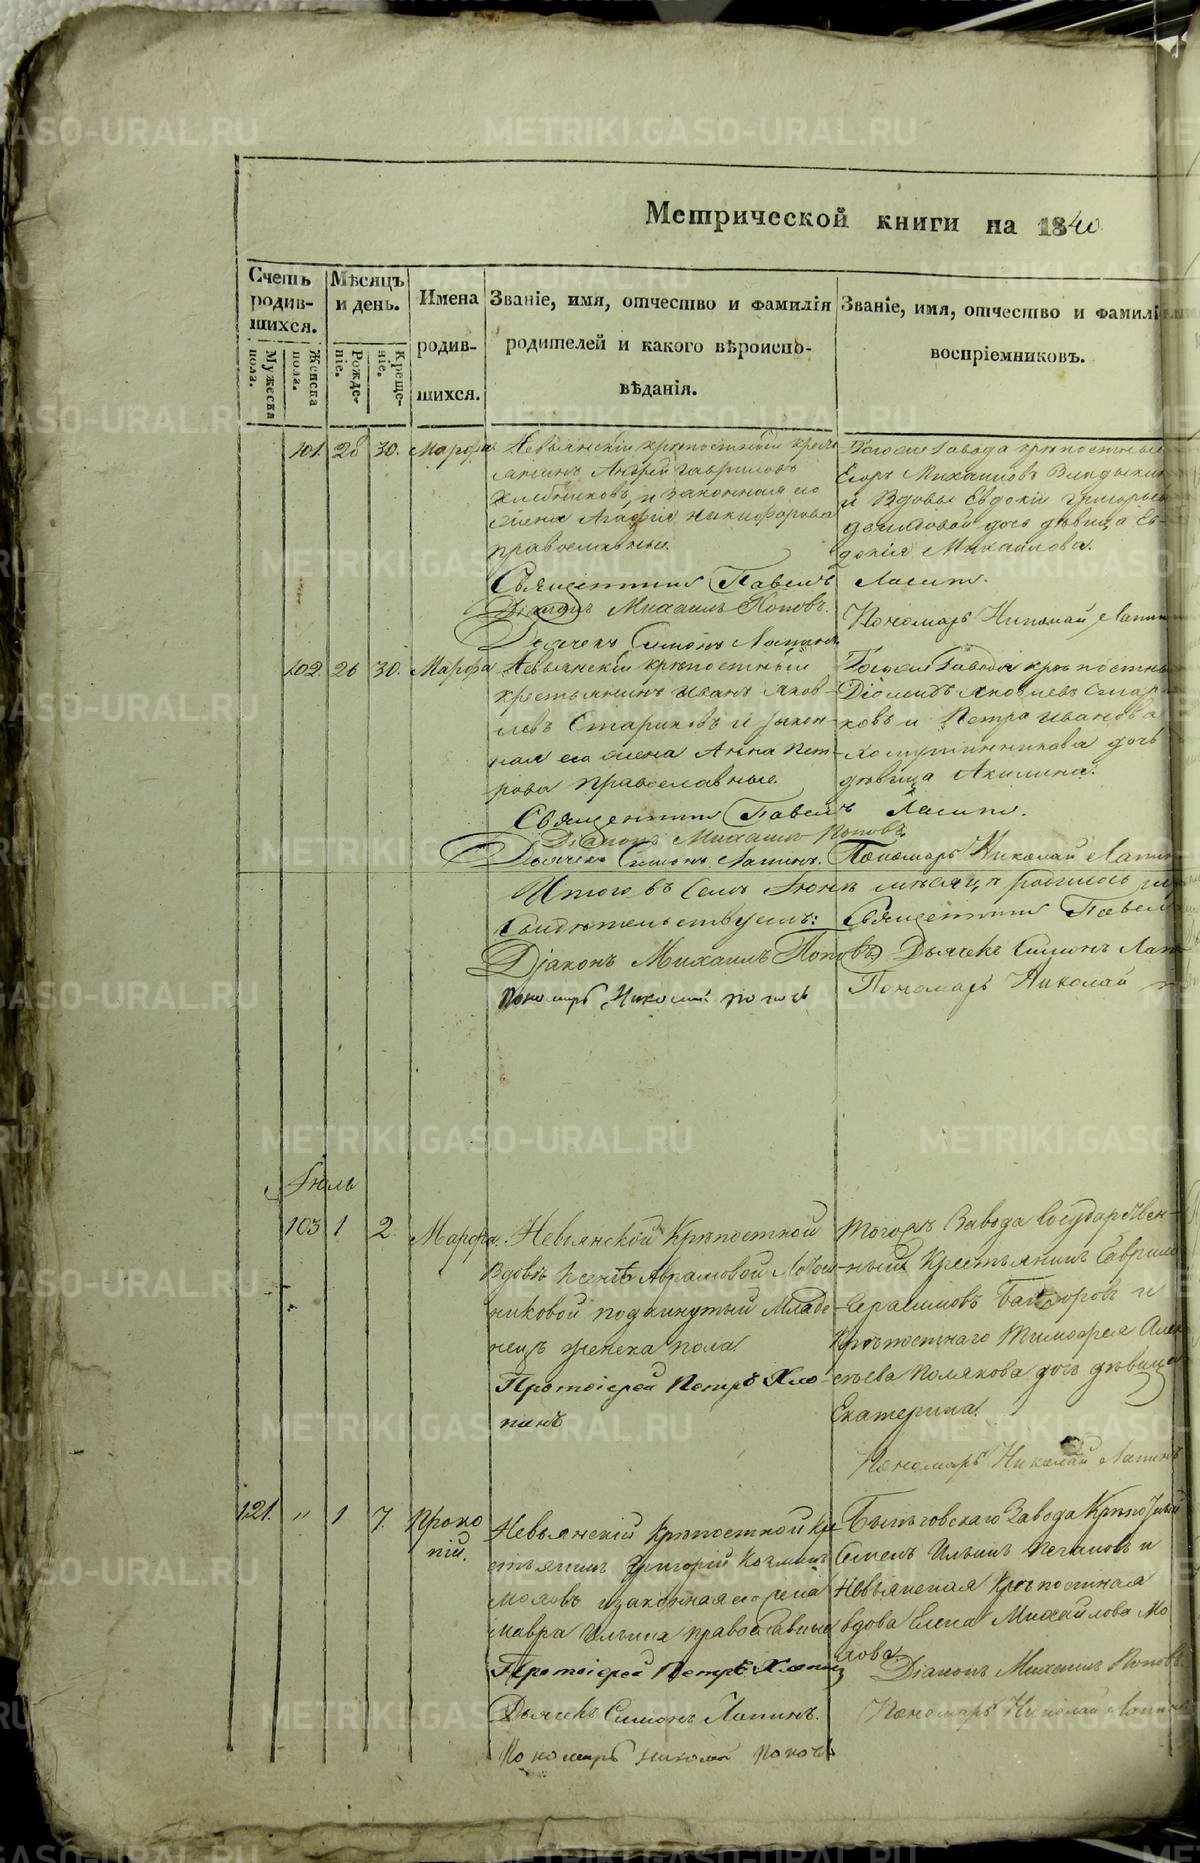 Метрической книги на 1840
Счетъ родив-шихся.
Мужеска пола.
Женска пола.
Мѣсяцъ и день.
Рожде-ніе.
Креще-ніе.
Имена
родив-
шихся.
Званіе, имя, отчество и фамилія
родителей и какого вѣроиспо-
вѣданія.
Званіе, имя, отчество и фамилі
воспріемниковъ.
101. 28 30. Марфа
Невьянскій крѣпостный крест
янинъ Андрей Гавриловъ
Хлебниковъ и законная его
жена Агафія Никифорова
православные.
Священникъ Павелъ
Діаконъ Михаилъ Поповъ.
Дьячекъ Симонъ Лапинъ
Тогоже Завода крѣпостный
Егоръ Михайловъ
и Вдовы Евдокіи Григорьев
дочь дѣвица Ев-
докія Михайлова.
Пономарь Николай Лапин
102. 26 30. Марфа
Невьянскій крѣпостный
крестьянинъ Иванъ Яков-
левъ Стариковъ и закон-
ная его жена Анна Пет-
рова православные.
Священникъ Павелъ
Діаконъ Михаилъ Поповъ.
Дьячекъ Симонъ Лапинъ.
Тогоже Завода крѣпостны
Діомидъ Яковлевъ Стар
ковъ и Петра Иванова
Хомутинникова дочь
дѣвица Акилина.
Пономарь Николай Лапин
Итого въ семъ Іюнѣ мѣсяцѣ родилось
Свидѣтельствуемъ: Священникъ Павел
Діаконъ Михаилъ Поповъ Дьячекъ Симонъ Лап
Пономарь Николай Поповъ
Пономарь Николай
Іюль
103 1 2. Марфа.
Невьянской Крѣпостной
Вдовѣ Ксеніѣ Аврамовой
никовой подкинутый Младе-
нецъ женска пола.
Протоіерей Петръ Хло-
пинъ
Тогожъ Завода Государствен-
ный Крестьянинъ Гаврило
Герасимовъ и
Крѣпостнаго Тимофея Алек
сѣева Полякова дочь дѣвица
Екатерина.
Пономарь Николай Лапинъ
121. " 1 7. Проко
пій.
Невьянскій Крѣпостной Кре
стьянинъ Григорій Козминъ
Моховъ и законная его жена
Мавра Ильина православные
Протоіерей Петръ Хлопин
Дьячекъ Симонъ Лапинъ.
Пономарь Николай Поповъ
Быньговскаго Завода Крѣпостный
Семенъ Ильинъ и
Невьянская Крѣпостная
вдова Елена Михайлова Мо
хова
Діаконъ Михаилъ Поповъ.
Пономарь Николай Лапин
METRIKI.GASO-URAL.RU